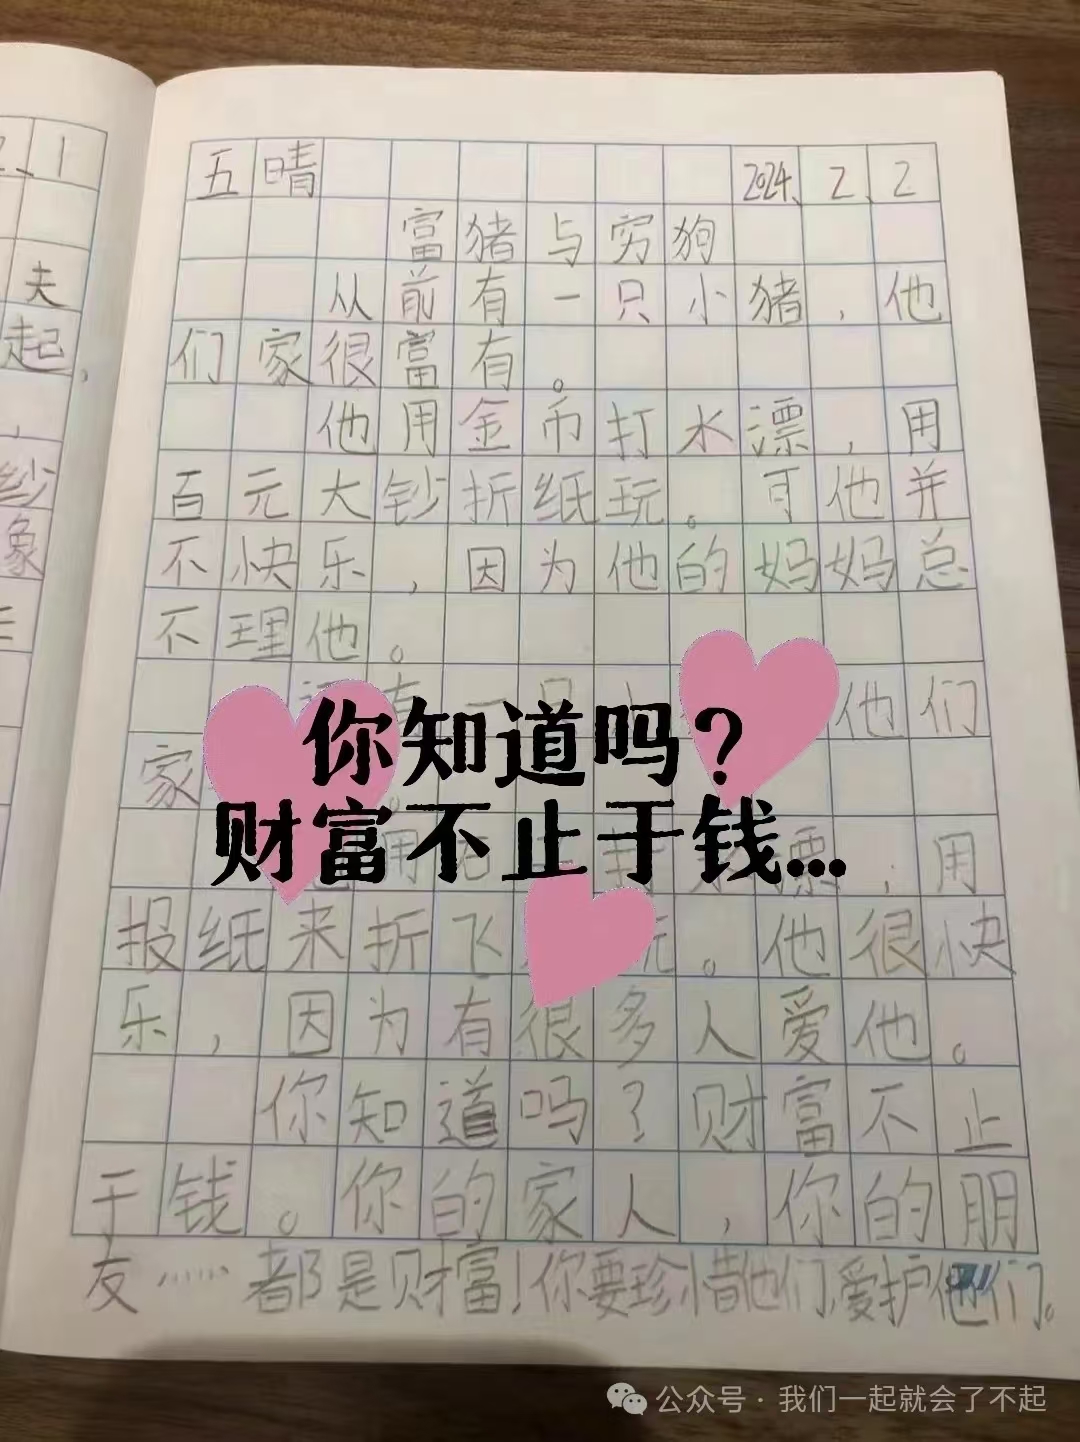 2、1
夫
起，
，
纱
象
五 晴 2024、2、2
富猪与穷狗
从前有一只小猪，他
们家很富有。
他用金币打水漂，用
百元大钞折纸玩。可他并
不快乐，因为他的妈妈总
不理他。
有一只 他们
家
你知道吗？
财富不止于钱...
用 打水漂，用
报纸来折飞 玩。他很快
乐，因为有很多人爱他。
你知道吗？财富不止
于钱。你的家人，你的朋
友……都是财富！你要珍惜他们，爱护他们。
公众号·我们一起就会了不起